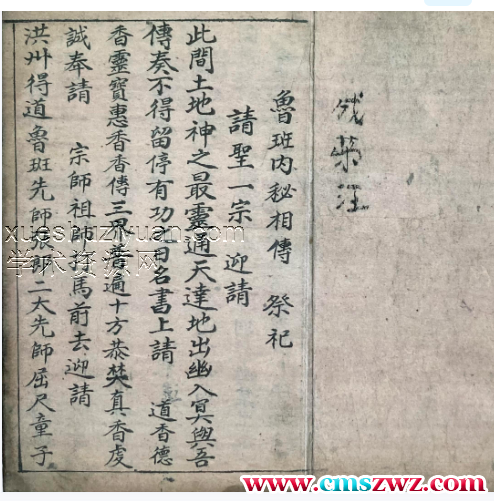 汪
魯班内秘相傳 祭祀
請聖一宗 迎請
此間土地神之最靈通天達地出幽入冥與吾
傳奏不得留停有功 日名書上請 道香德
香靈寶惠香香傳三界普遍十方恭焚真香虔
誠奉請 宗師祖師打馬前去迎請
洪州得道魯班先師張郎二太先師屈尺童子
xueshuziyuan.com
学术资源网
www.cmszwz.com